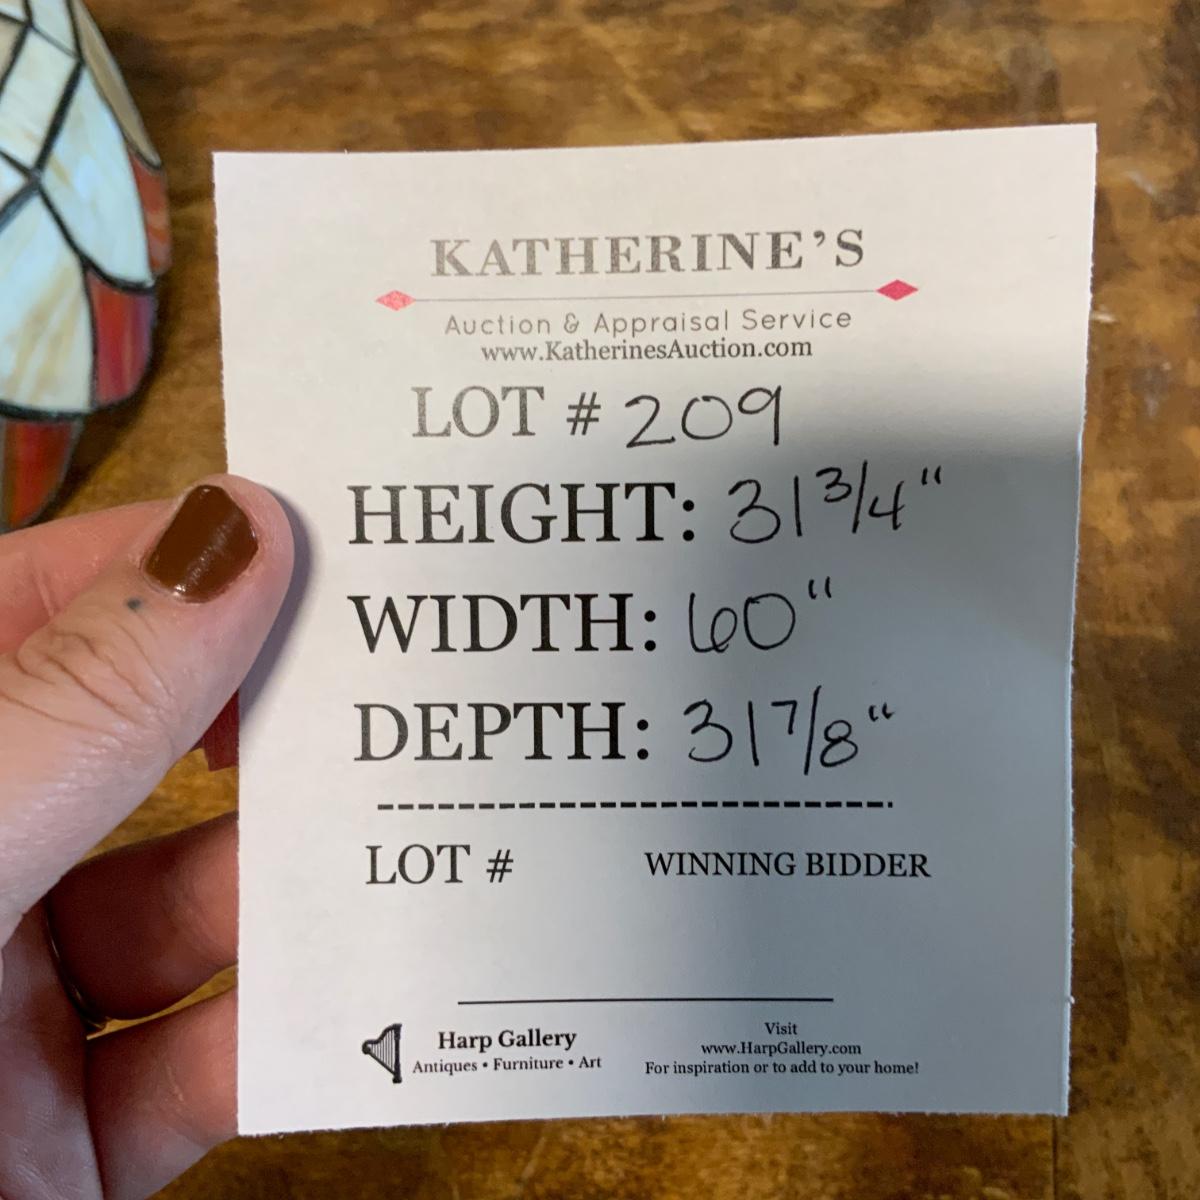 KATHERINE'S
Auction & Appraisal Service
www.KatherinesAuction.com
LOT # 209
HEIGHT: 31 3/4"
WIDTH: 60"
DEPTH: 31 7/8"
LOT # WINNING BIDDER
Harp Gallery
Antiques • Furniture • Art
Visit
www.HarpGallery.com
For inspiration or to add to your home!